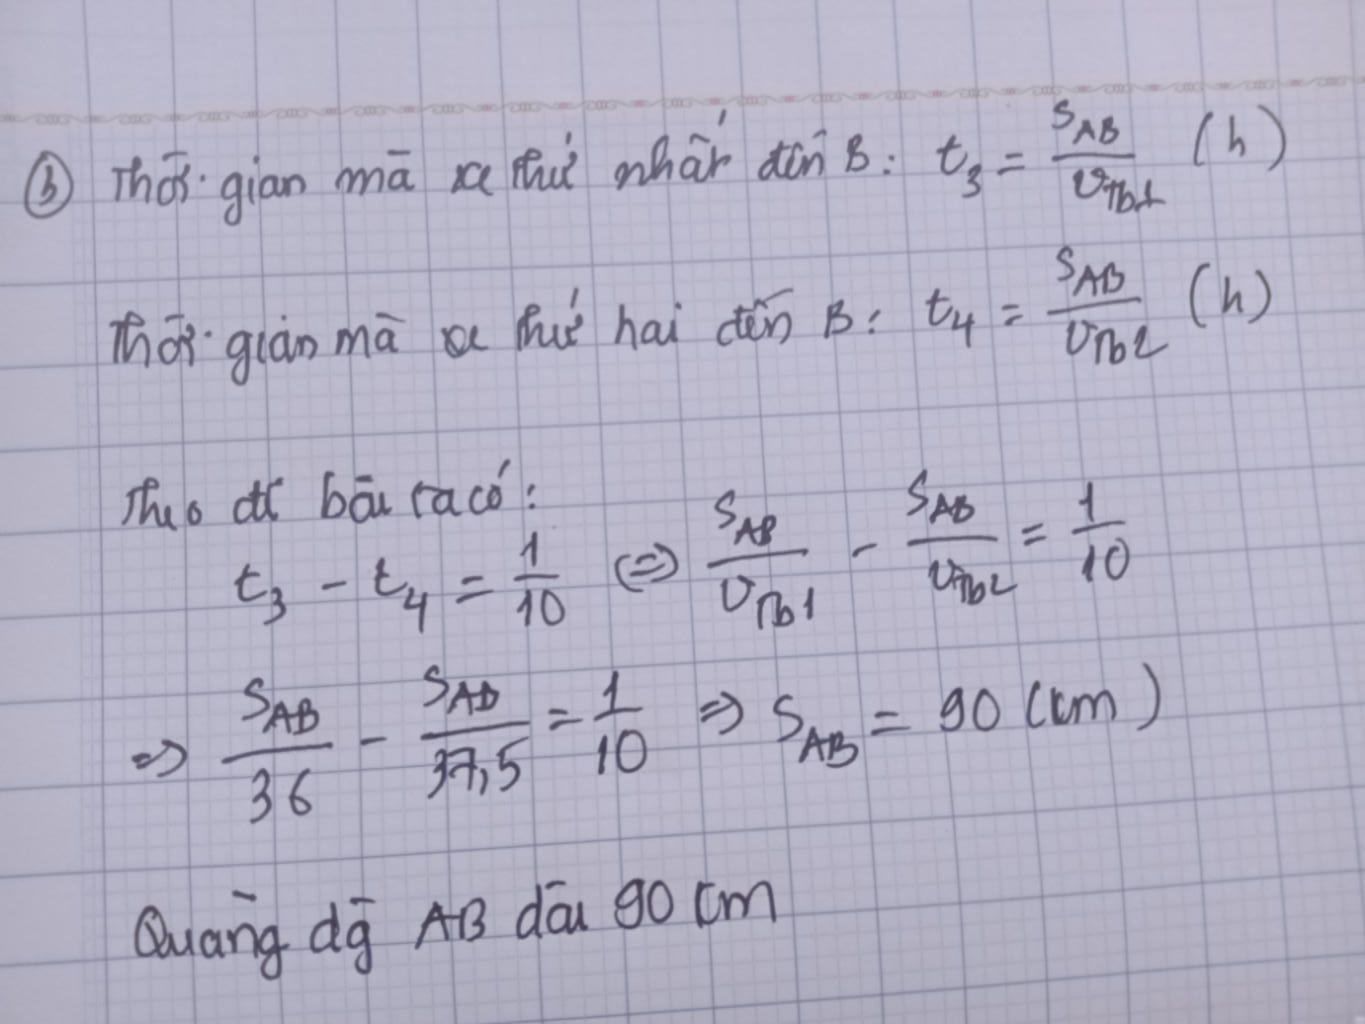 b) Thời gian mà xe thứ nhất đến B: t₃ = S_AB / v_Tb1 (h)
Thời gian mà xe thứ hai đến B: t₄ = S_AB / v_Tb2 (h)
Theo đề bài ta có:
t₃ - t₄ = 1/10 ⇔ S_AB / v_Tb1 - S_AB / v_Tb2 = 1/10
⇒ S_AB / 36 - S_AB / 37,5 = 1/10 ⇒ S_AB = 90 (km)
Quãng đg AB dài 90 km